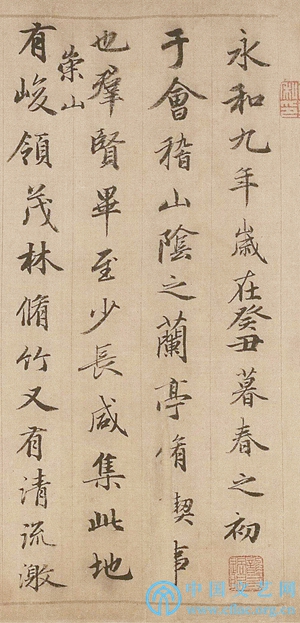 永和九年歲在癸丑暮春之初
于會稽山陰之蘭亭脩禊事
也羣賢畢至少長咸集此地
崇山
有峻領茂林脩竹又有清流激
中国文艺网
www.cflac.org.cn